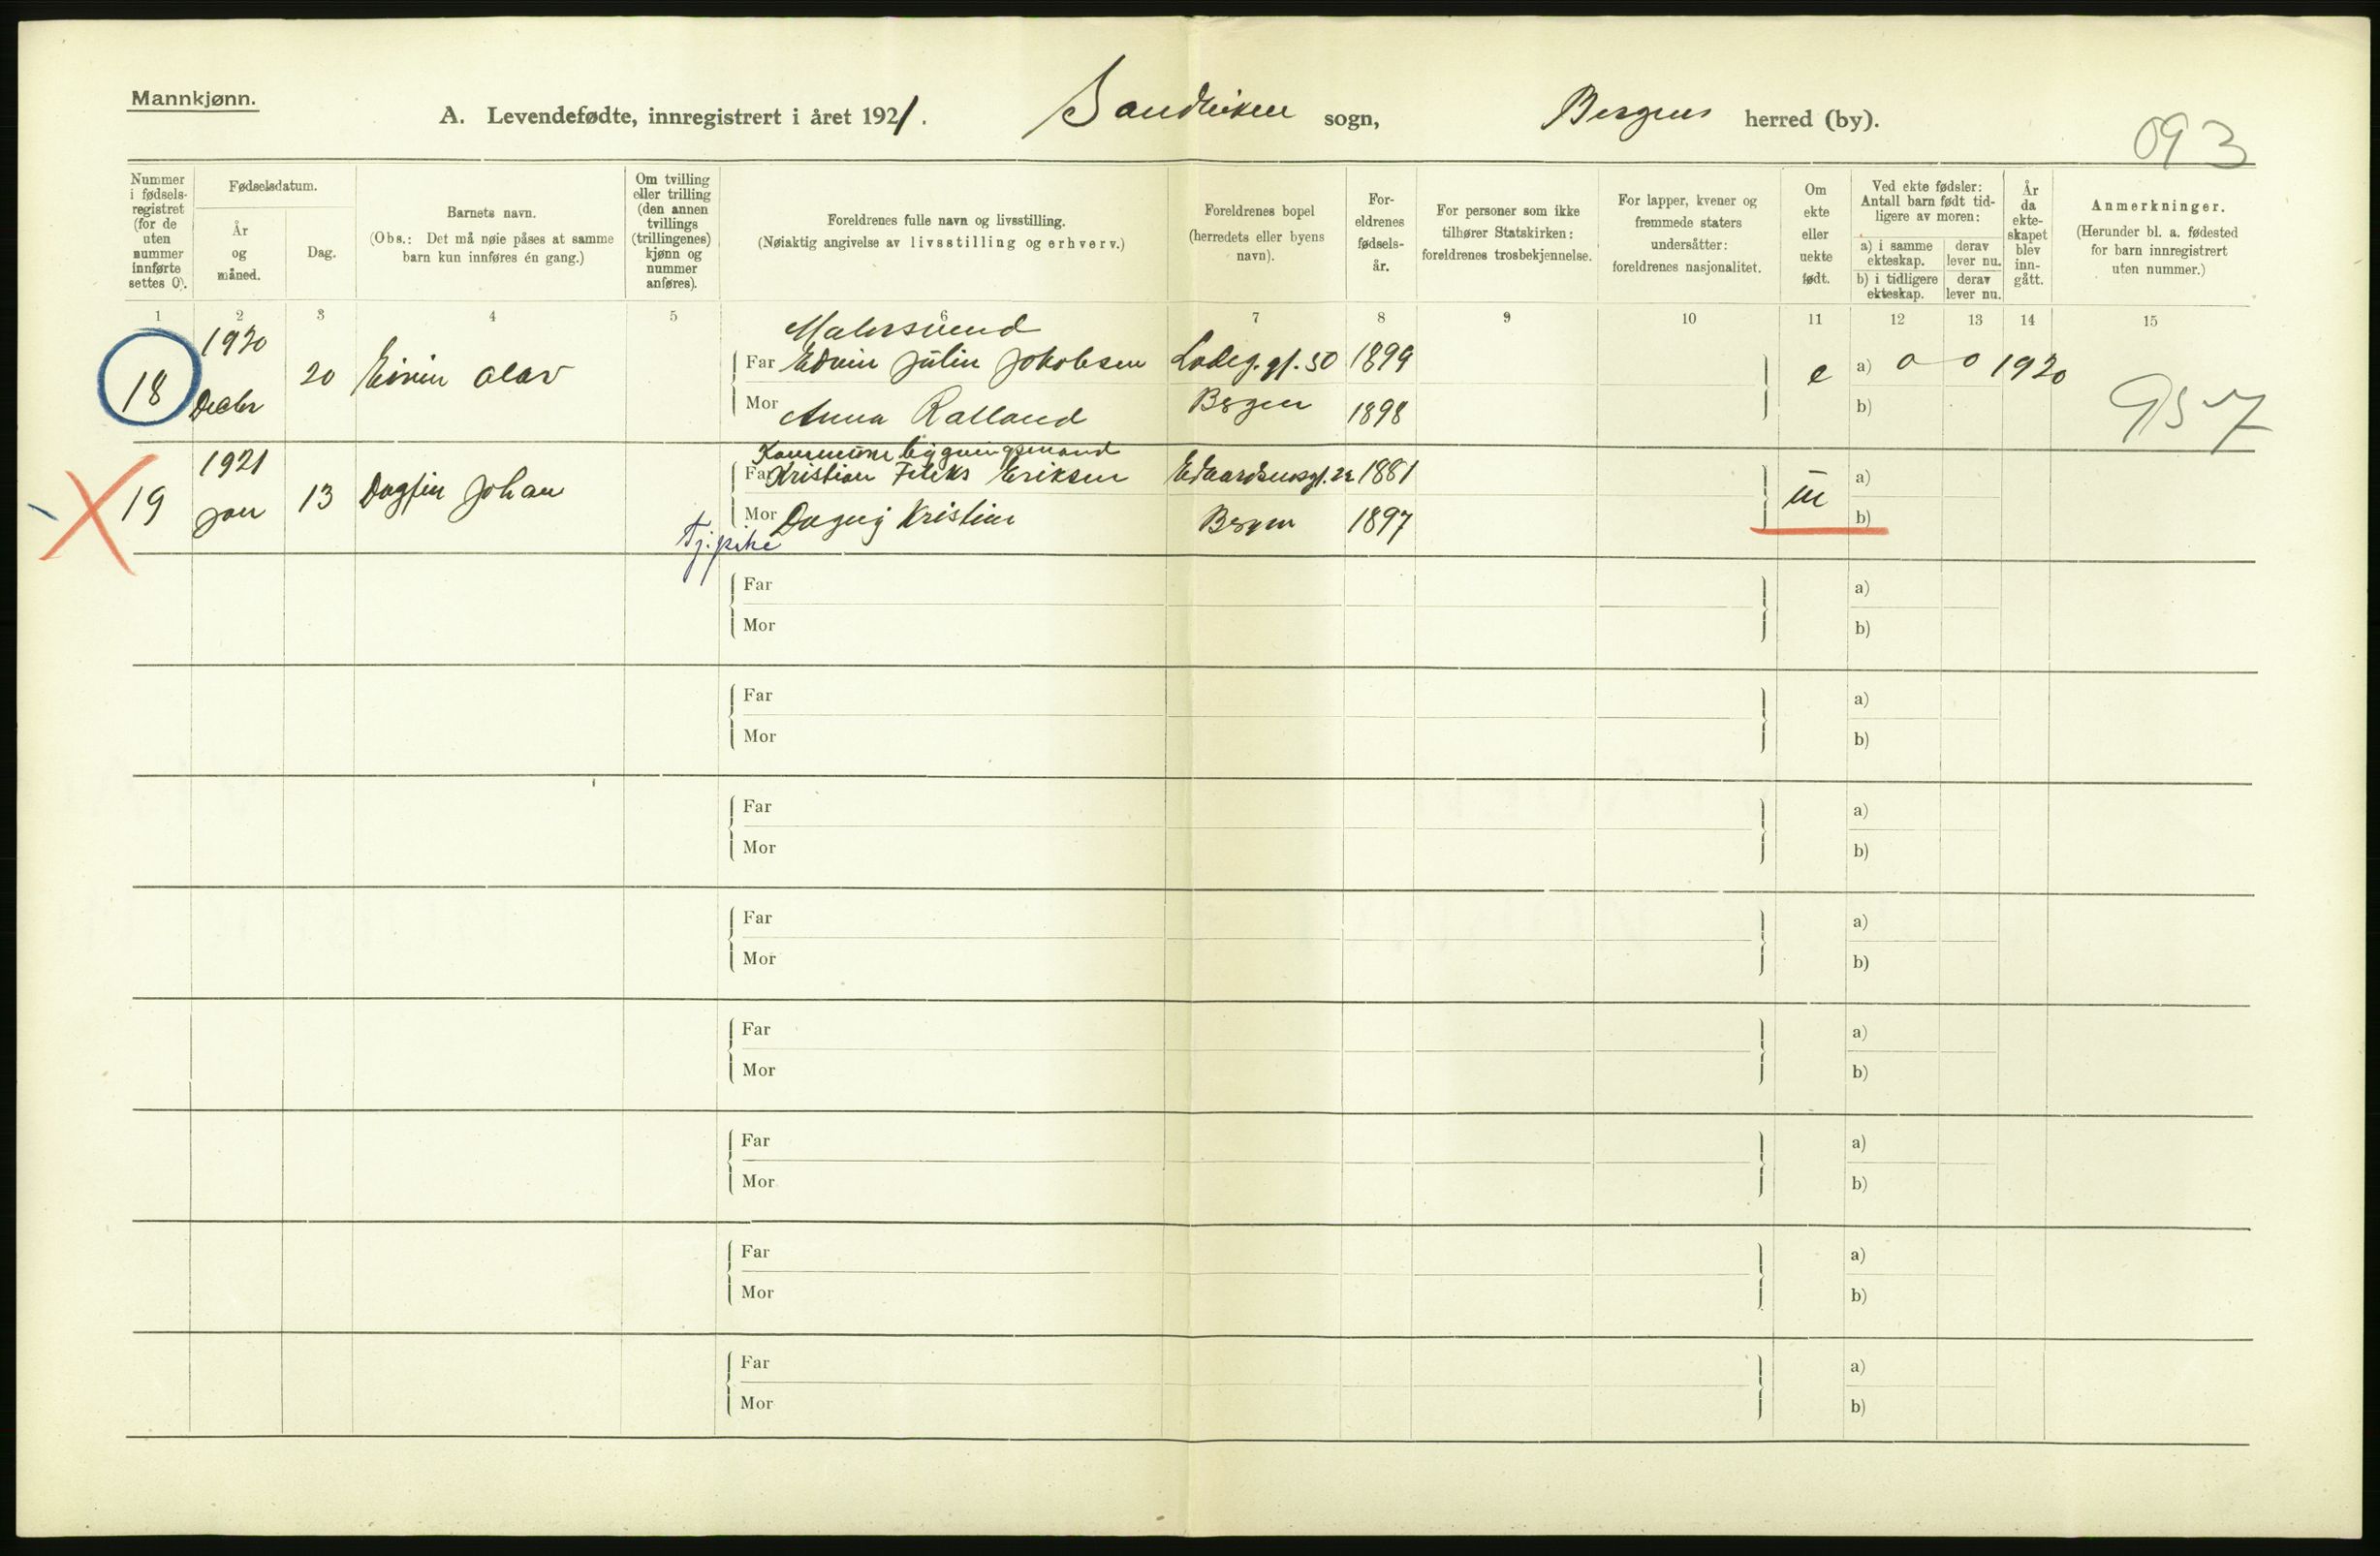 Mannkjønn.
A. Levendefødte, innregistrert i året 1921. Sandviken sogn, Bergens herred (by).
093
Nummer i fødsels-registret (for de uten nummer innførte settes 0).
Fødselsdatum.
År og måned.
Dag.
Barnets navn.
(Obs.: Det må nøie påses at samme barn kun innføres én gang.)
Om tvilling eller trilling (den annen tvillings (trillingenes) kjønn og nummer anføres).
Foreldrenes fulle navn og livsstilling.
(Nøiaktig angivelse av livsstilling og erhverv.)
Foreldrenes bopel (herredets eller byens navn).
For-eldrenes fødsels-år.
For personer som ikke tilhører Statskirken: foreldrenes trosbekjennelse.
For lapper, kvener og fremmede staters undersåtter: foreldrenes nasjonalitet.
Om ekte eller uekte født.
Ved ekte fødsler: Antall barn født tid-ligere av moren:
a) i samme ekteskap.
derav lever nu.
b) i tidligere ekteskap.
derav lever nu.
År da ekte-skapet blev inn-gått.
Anmerkninger.
(Herunder bl. a. fødested for barn innregistrert uten nummer.)
1 2 3 4 5 6 7 8 9 10 11 12 13 14 15
Malersvend
18 1920 Decbr 20 Eivin Olav
Far Edvin Julin Jakobsen Ladeg. gt. 50 1899 e a) 0 0 1920
Mor Anna Ralland Bergen 1898 b)
957
19 1921 Jan 13 Dagfin Johan
Far Kristian Feliks Eriksen 1881 a)
Mor Dagny Kristine Bergen 1897 b)
Tj.pike
Far a)
Mor b)
Far a)
Mor b)
Far a)
Mor b)
Far a)
Mor b)
Far a)
Mor b)
Far a)
Mor b)
Far a)
Mor b)
Far a)
Mor b)